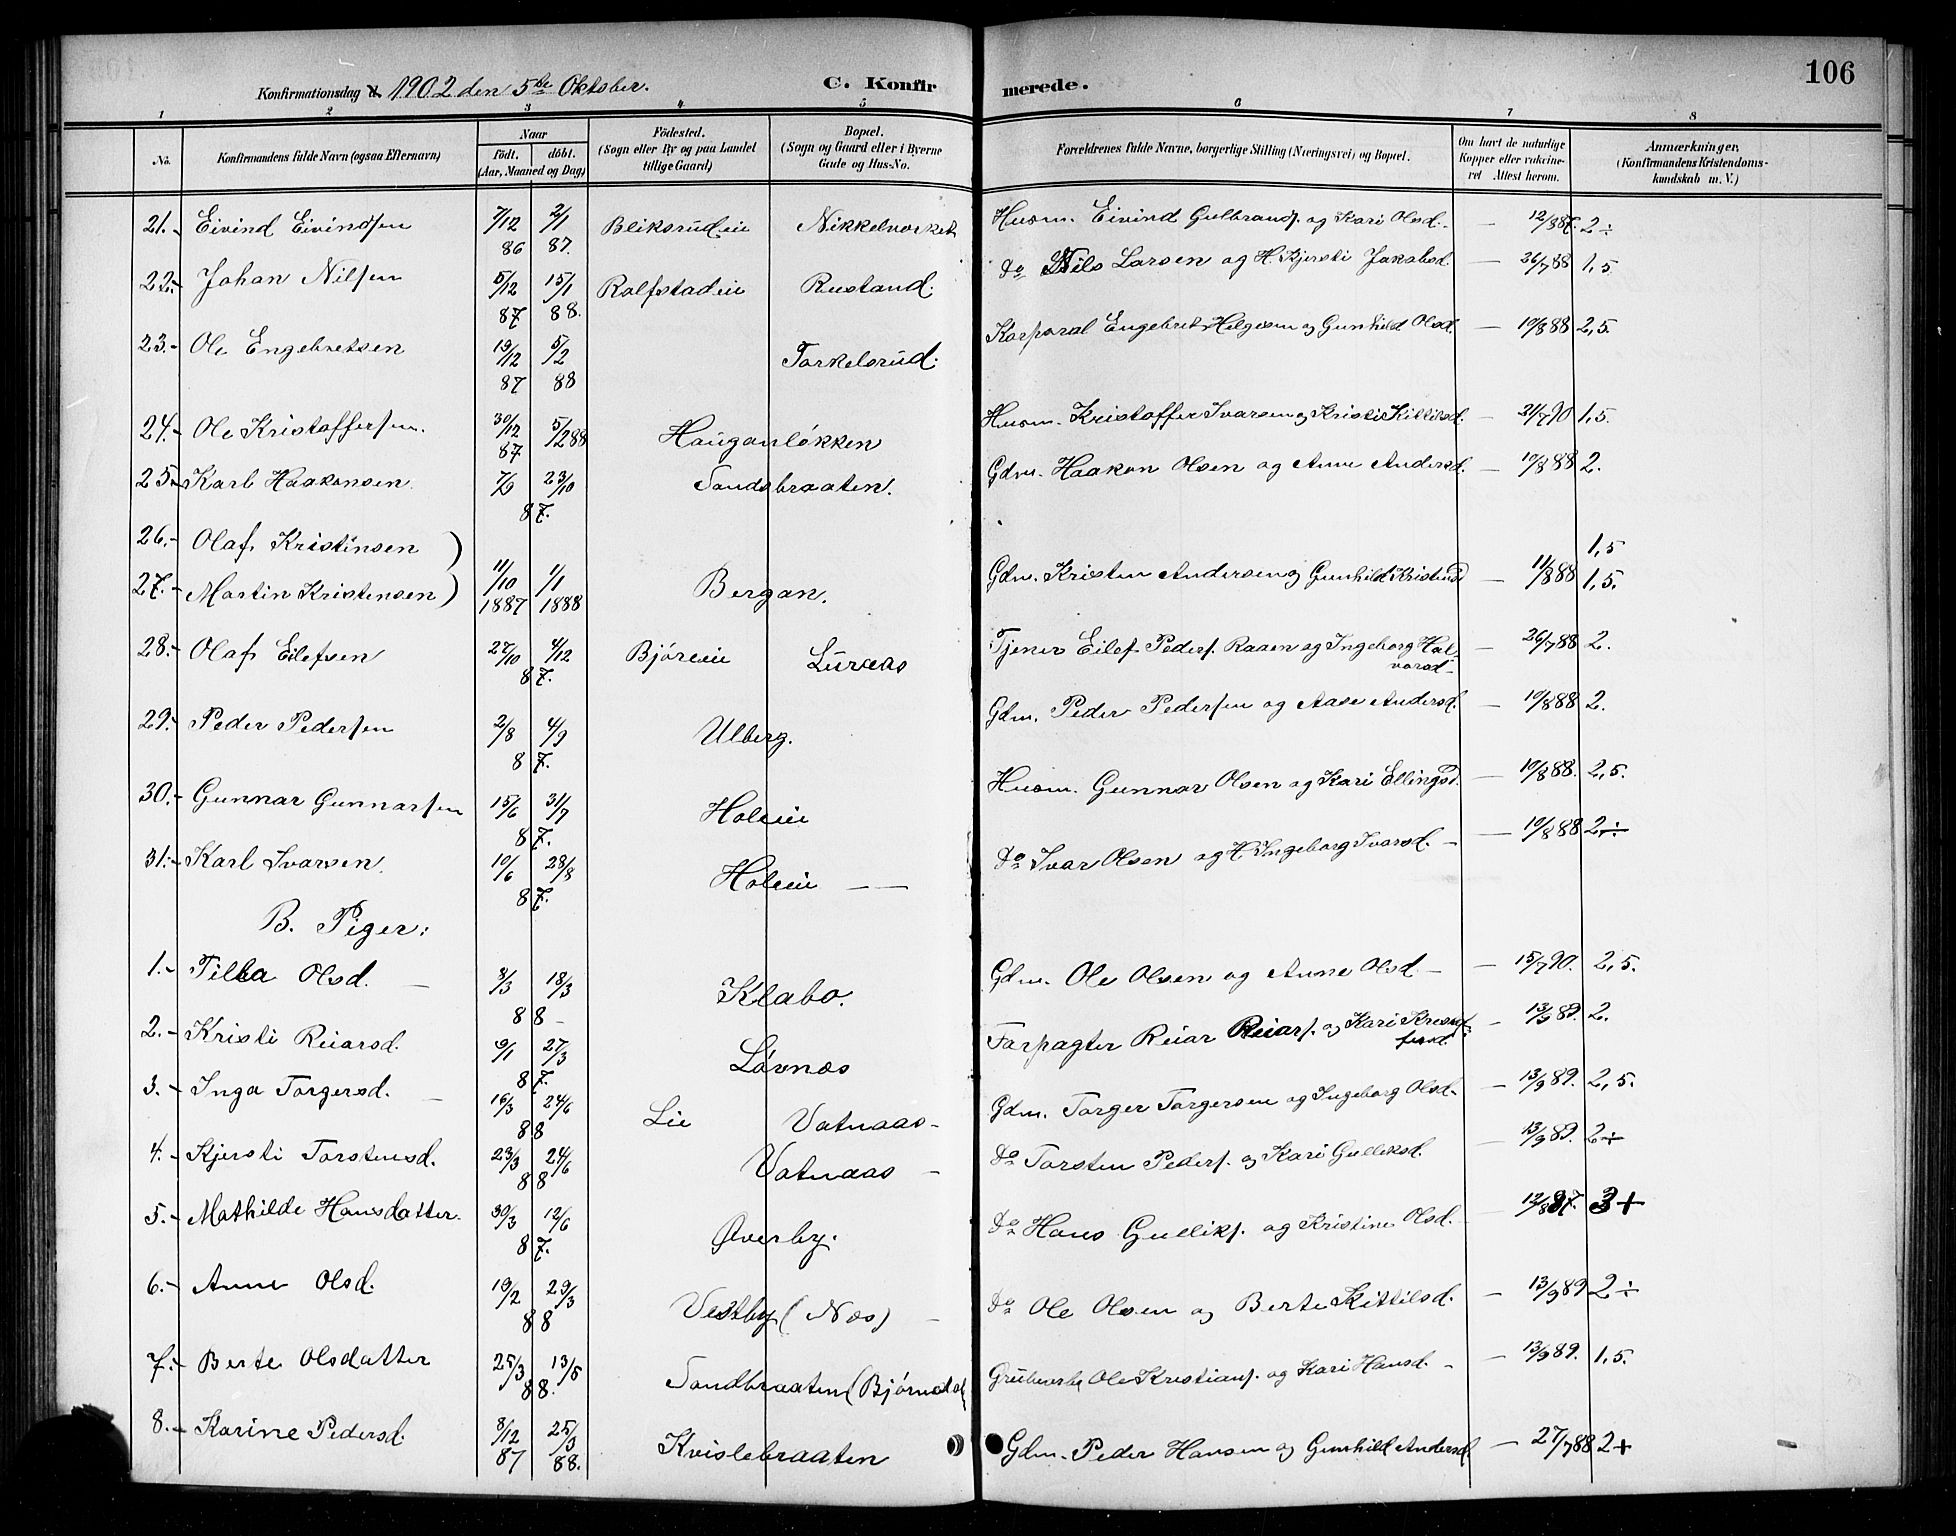 106
Konfirmationsdag d. 1902 den 5te Oktober. C. Konfirmerede.
1 2 3 4 5 6 7 8
No. Konfirmandens fulde Navn (ogsaa Efternavn) Naar födt. döbt. (Aar, Maaned og Dag) Födested. (Sogn eller By og paa Landet tillige Gaard) Bopæl. (Sogn og Gaard eller i Byerne Gade og Hus-No. Forældrenes fulde Navne, borgerlige Stilling (Næringsvei) og Bopæl. Om havt de naturlige Kopper eller vakcineret Attest herom. Anmærkninger. (Konfirmandens Kristendomskundskab m. V.)
21.- Eivind Eivindsen 7/12 86 2/1 87. Bliksrudeie Nikkelverket Husm. Eivind Gulbrands. og Kari Olsd. - 12/8 87. 2÷
22.- Johan Nilsen 5/12 87 15/1 88. Rolfstadeie Rustand. do Nils Larsen og H. Kjersti Jakobsd. - 26/7 88 1,5
23.- Ole Engebretsen 19/12 87 5/2 88 Torkelsrud. Korporal Engebret Helgesen og Gunhild Olsd. - 10/8 88 2,5.
24.- Ole Kristoffersen. 30/12 87 5/2 88 Hauganløkken Husm. Kristoffer Ivarsen og Kristi Kittilsd. - 21/7 90 1,5.
25.- Karl Haakonsen. 7/9 23/10 87. Sandsbraaten. Gdm. Haakon Olsen og Anne Andersd. - 10/8 88 2.
26.- Olaf Kristinsen ) 1,5
27.- Martin Kristensen ) 11/10 1887 1/1 1888 Bergan. Gdm. Kristen Andersen og Gunhild Kristensd - 11/8 88 1,5.
28.- Olaf Eilefsen 27/10 4/12 87. Bjøreeie Luraas Tjener Eilef Peders. Raaen og Ingeborg Halvorsd - 26/7 88 2.
29.- Peder Pedersen 2/8 4/9 87. Ulberg. Gdm. Peder Pedersen og Aase Andersd. - 10/8 88 2.
30.- Gunnar Gunnarsen 15/6 31/7 87. Holeie Husm. Gunnar Olsen og Kari Ellingsd. - 10/8 88. 2,5.
31.- Karl Ivarsen. 10/6 28/8 87. Holeie - do Ivar Olsen og H. Ingeborg Ivarsd. - 10/8 88 2÷
B. Piger:
1.- Tilla Olsd. 3/3 18/3 88 - Klabo. Gdm. Ole Olsen og Anne Olsd - 15/7 90. 2,5.
2.- Kristi Reiarsd. 9/1 27/3 87. Løvnæs Forpagter Reiar Reiars. og Kari - 13/9 89. 2.
3.- Inga Torgersd. 16/3 24/6 88 Lie Vatnaas - Gdm. Torger Torgersen og Ingeborg Olsd. - 13/9 89. 2,5.
4.- Kjersti Torstensd. 23/3 24/6 88 Vatnaas - do Torsten Peders. og Kari Gulliksd. - 13/9 89. 2÷
5.- Mathilde Hansdatter. 30/3 12/6 87. Øverby. do Hans Gulliks. og Kristine Olsd. - 12/8 87. 3+
6.- Anne Olsd. 19/2 29/3 88 Vestby (Næs) - do Ole Olsen og Berte Kittilsd. - 13/9 89 2÷
7.- Berte Olsdatter 25/3 13/5 88. Sandbraaten (Bjørndal Grubearb. Ole Kristians. og Kari Hansd. - 13/9 89. 1,5.
8.- Karine Pedersd. 8/12 87 25/3 88. Kvislebraaten Gdm. Peder Hansen og Gunhild Andersd - 27/7 88 2+